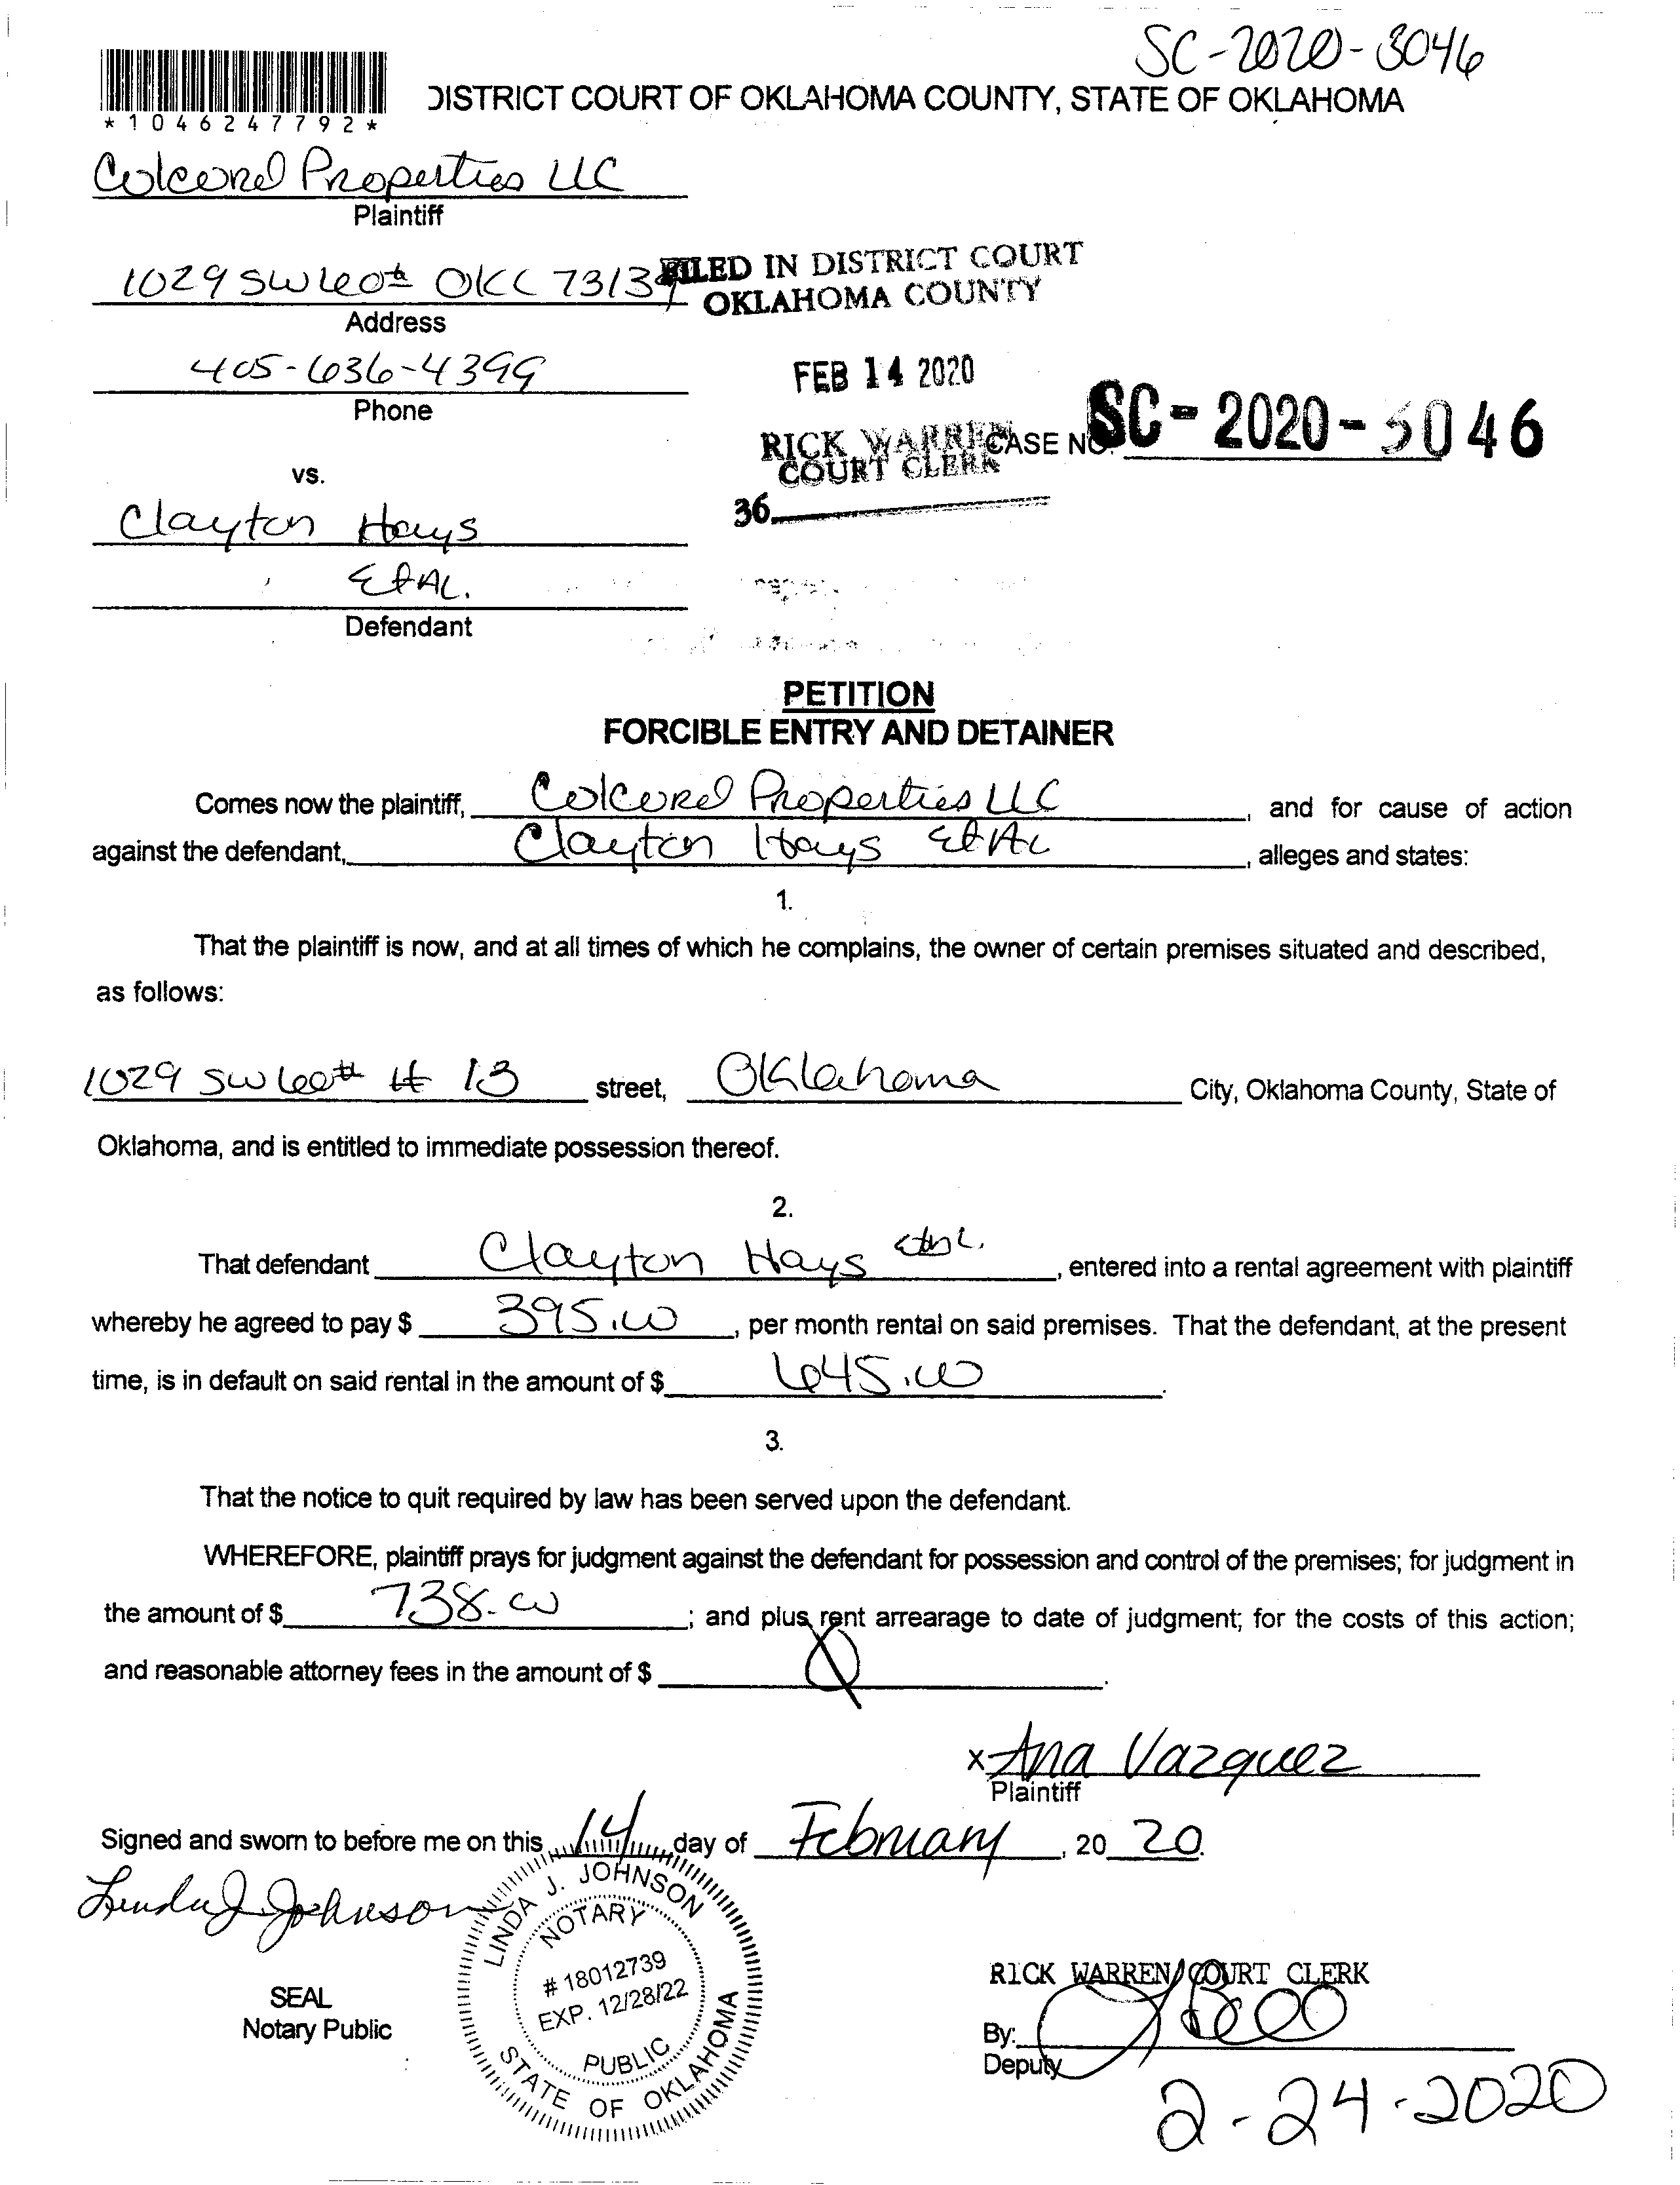 SC-2020-3046
*1046247792*
DISTRICT COURT OF OKLAHOMA COUNTY, STATE OF OKLAHOMA
Colcord Properties LLC
Plaintiff
1029 SW 60th OKC 73139
FILED IN DISTRICT COURT
OKLAHOMA COUNTY
Address
405-636-4399
Phone
FEB 14 2020
RICK WARREN
COURT CLERK
CASE NO. SC-2020-3046
36
vs.
Clayton Hays
Et AL.
Defendant
PETITION
FORCIBLE ENTRY AND DETAINER
Comes now the plaintiff, Colcord Properties LLC, and for cause of action
against the defendant, Clayton Hays Et AL, alleges and states:
1.
That the plaintiff is now, and at all times of which he complains, the owner of certain premises situated and described,
as follows:
1029 SW 60th # 13 street, Oklahoma City, Oklahoma County, State of
Oklahoma, and is entitled to immediate possession thereof.
2.
That defendant Clayton Hays Et AL., entered into a rental agreement with plaintiff
whereby he agreed to pay $ 395.00, per month rental on said premises. That the defendant, at the present
time, is in default on said rental in the amount of $ 645.00.
3.
That the notice to quit required by law has been served upon the defendant.
WHEREFORE, plaintiff prays for judgment against the defendant for possession and control of the premises; for judgment in
the amount of $ 738.00; and plus rent arrearage to date of judgment; for the costs of this action;
and reasonable attorney fees in the amount of $ 0.
x Ana Vazquez
Plaintiff
Signed and sworn to before me on this 14 day of February, 20 20.
Linda J Johnson
LINDA J. JOHNSON
NOTARY
# 18012739
EXP. 12/28/22
PUBLIC
STATE OF OKLAHOMA
SEAL
Notary Public
RICK WARREN, COURT CLERK
By:
Deputy
2-24-2020